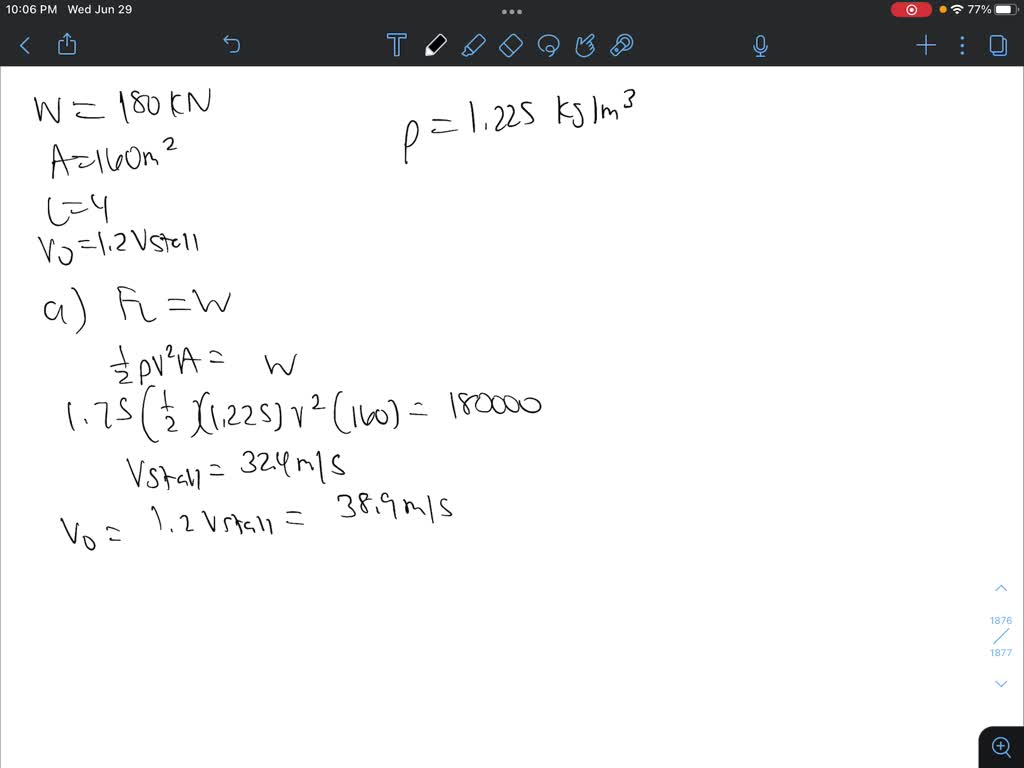 10:06 PM Wed Jun 29
77%
W = 180 KN
ρ = 1.225 kg/m³
A = 160m²
C = 4
V₀ = 1.2 Vstall
a) FL = W
½ ρV²A = W
1.75 (½)(1.225) V² (160) = 180000
Vstall = 32.4 m/s
V₀ = 1.2 Vstall = 38.9 m/s
1876
1877